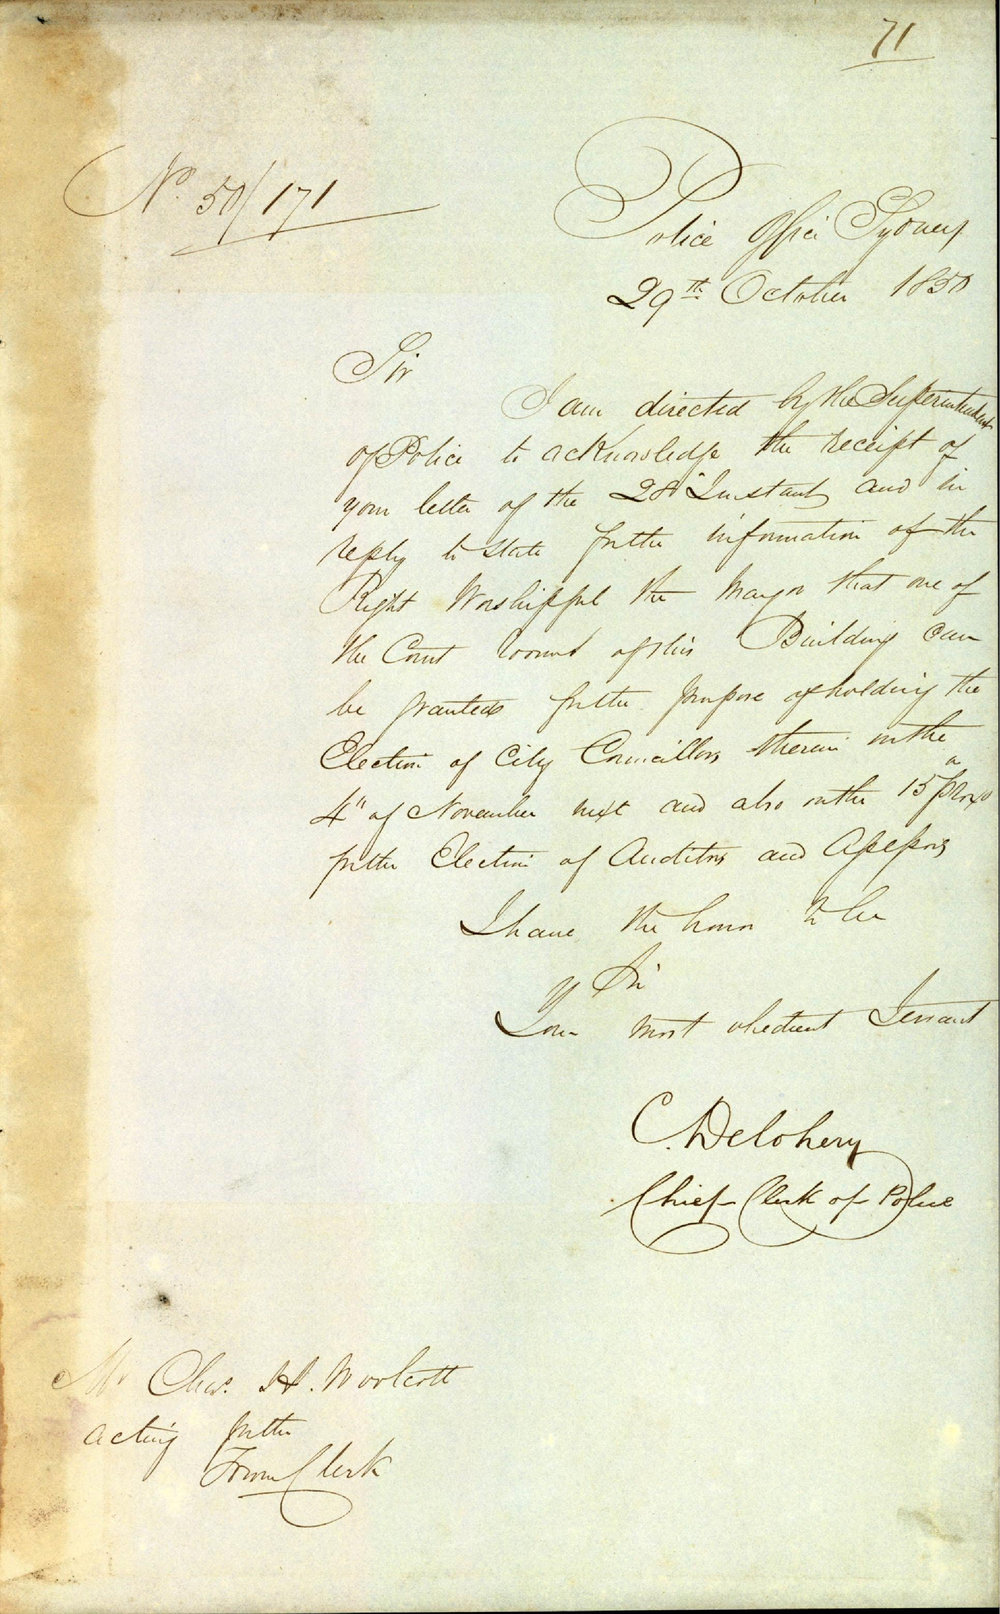 71
No. 50/171
Police Office Sydney
29th October 1850
Sir
I am directed by the Superintendent
of Police to acknowledge the receipt of
your letter of the 28" Instant, and in
reply to state for the information of the
Right Worshipful the Mayor that one of
the Court rooms of this Building can
be granted for the purpose of holding the
Election of City Councillors therein on the
4" of November next and also on the 15" proxo
for the Election of Auditors and Assessors
I have the honor to be
Sir
Your most obedient Servant
C. Delohery
Chief Clerk of Police
Mr Chas. H. Woolcott
acting for the
Town Clerk